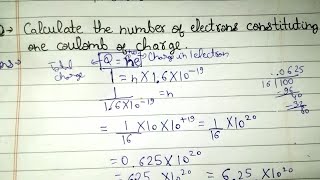 Q→ Calculate the number of electrons constituting
one coulomb of charge.
Ans→ Total charge ← Q = ne → Charge in 1 electron
1 = n × 1.6 × 10⁻¹⁹
1/1.6×10⁻¹⁹ = n
⇒ 1/16 × 10 × 10⁺¹⁹ = 1/16 × 10²⁰
= 0.625 × 10²⁰
= 6.25 × 10²⁰
.0625
16 100
96
40